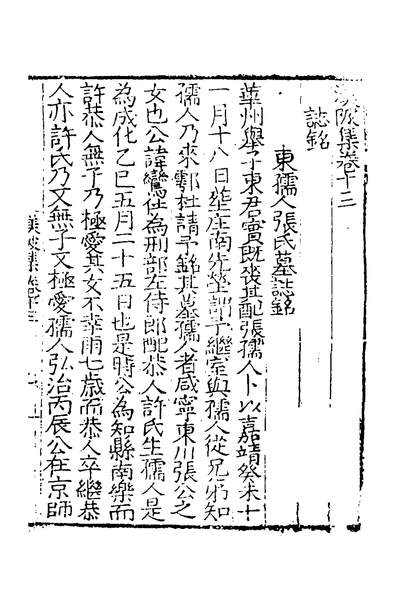 渼陂集卷十三
誌銘
東孺人張氏墓誌銘
華州舉子東君實既喪其配張孺人卜以嘉靖癸未十
一月十八日塟庄南先塋謂予繼室與孺人從兄弟知
孺人乃來鄠杜請予銘其墓孺人者咸寧東川張公之
女也公諱鸞仕為刑部左侍郎配恭人許氏生孺人是
為成化乙巳五月二十五日也是時公為知縣南樂而
許恭人無子乃極愛其女不幸雨七歲而恭人卒繼恭
人亦許氏乃又無子又極愛孺人弘治丙辰公在京師
渼陂集卷十三